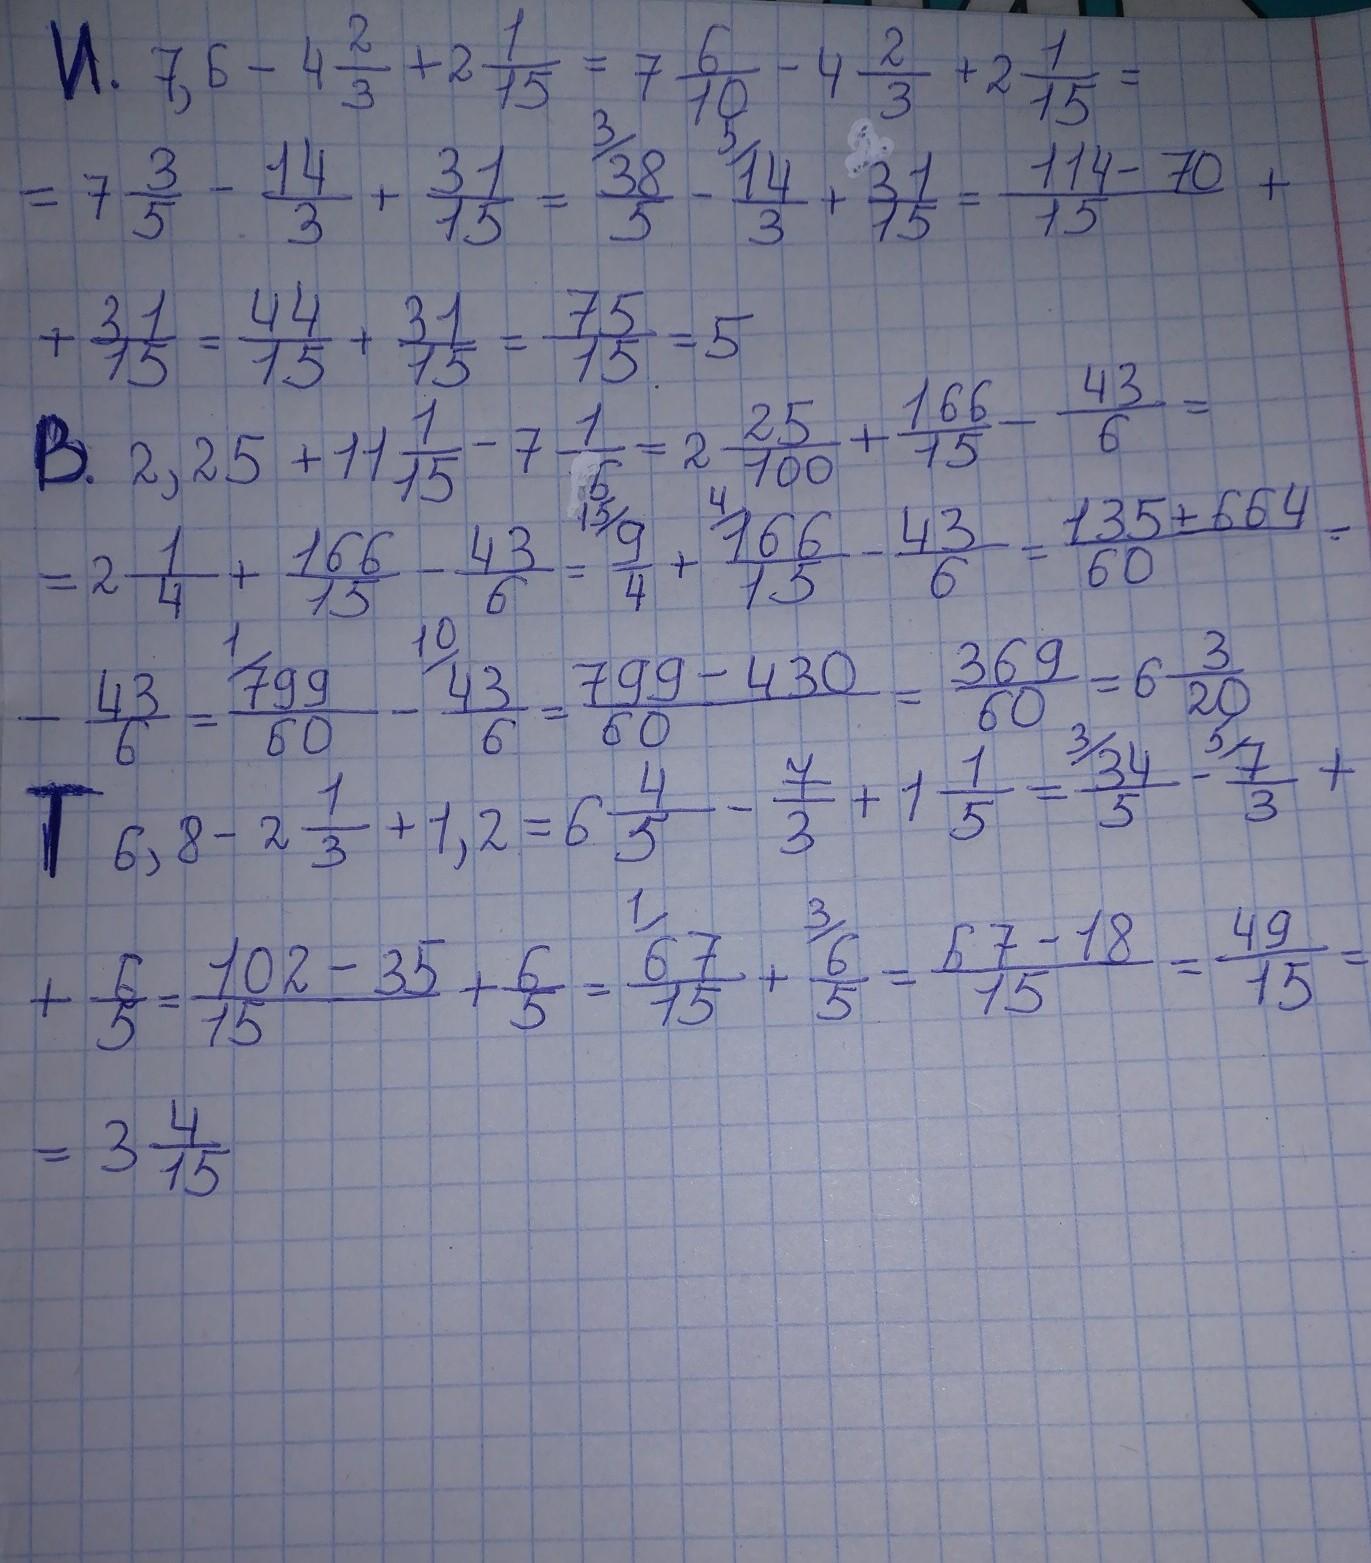 И. 7,6 - 4 2/3 + 2 1/15 = 7 6/10 - 4 2/3 + 2 1/15 =
= 7 3/5 - 14/3 + 31/15 = 3/ 38/5 - 5/ 14/3 + 31/15 = 114-70/15 +
+ 31/15 = 44/15 + 31/15 = 75/15 = 5
В. 2,25 + 11 1/15 - 7 1/6 = 2 25/100 + 166/15 - 43/6 =
= 2 1/4 + 166/15 - 43/6 = 15/ 9/4 + 4/ 166/15 - 43/6 = 135+664/60 -
- 43/6 = 1/ 799/60 - 10/ 43/6 = 799-430/60 = 369/60 = 6 3/20
Т 6,8 - 2 1/3 + 1,2 = 6 4/5 - 7/3 + 1 1/5 = 3/ 34/5 - 5/ 7/3 +
+ 6/5 = 102-35/15 + 6/5 = 1/ 67/15 + 3/ 6/5 = 67-18/15 = 49/15 =
= 3 4/15